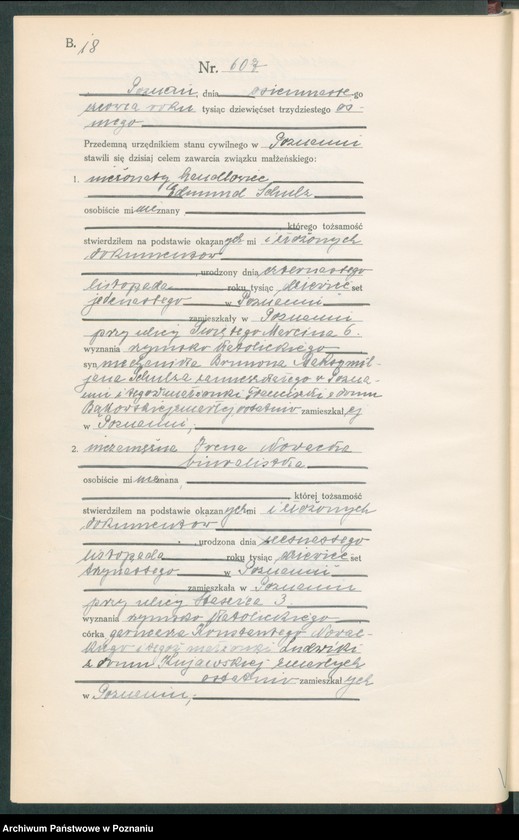 B. 18
Nr. 607
Poznań, dnia osiemnastego
marca roku tysiąc dziewięćset trzydziestego ós-
mego
Przedemną urzędnikiem stanu cywilnego w Poznaniu
stawili się dzisiaj celem zawarcia związku małżeńskiego:
1. nieżonaty handlowiec
Edmund Schulz
osobiście mi nieznany
którego tożsamość
stwierdziłem na podstawie okazanych mi i złożonych
dokumentów
, urodzony dnia czternastego
listopada roku tysiąc dziewięćset
jedenastego w Poznaniu
zamieszkały w Poznaniu
przy ulicy Świętego Marcina 6
wyznania rzymsko katolickiego
syn mechanika Brunona Maksymil-
jana Schulza zamieszkałego w Pozna-
niu i tegoż małżonki Franciszki z domu
zmarłej, ostatnio zamieszkałej
w Poznaniu,
2. niezamężna Irena Nowacka
biuralistka
osobiście mi nieznana,
której tożsamość
stwierdziłem na podstawie okazanych mi i złożonych
dokumentów
, urodzona dnia szesnastego
listopada roku tysiąc dziewięćset
trzynastego w Poznaniu
zamieszkała w Poznaniu
przy ulicy Staszica 3
wyznania rzymsko katolickiego
córka Konstantego Nowac-
kiego i tegoż małżonki Ludwiki
z domu Kujawskiej, zmarłych
ostatnio zamieszkałych
w Poznaniu,
Archiwum Państwowe w Poznaniu